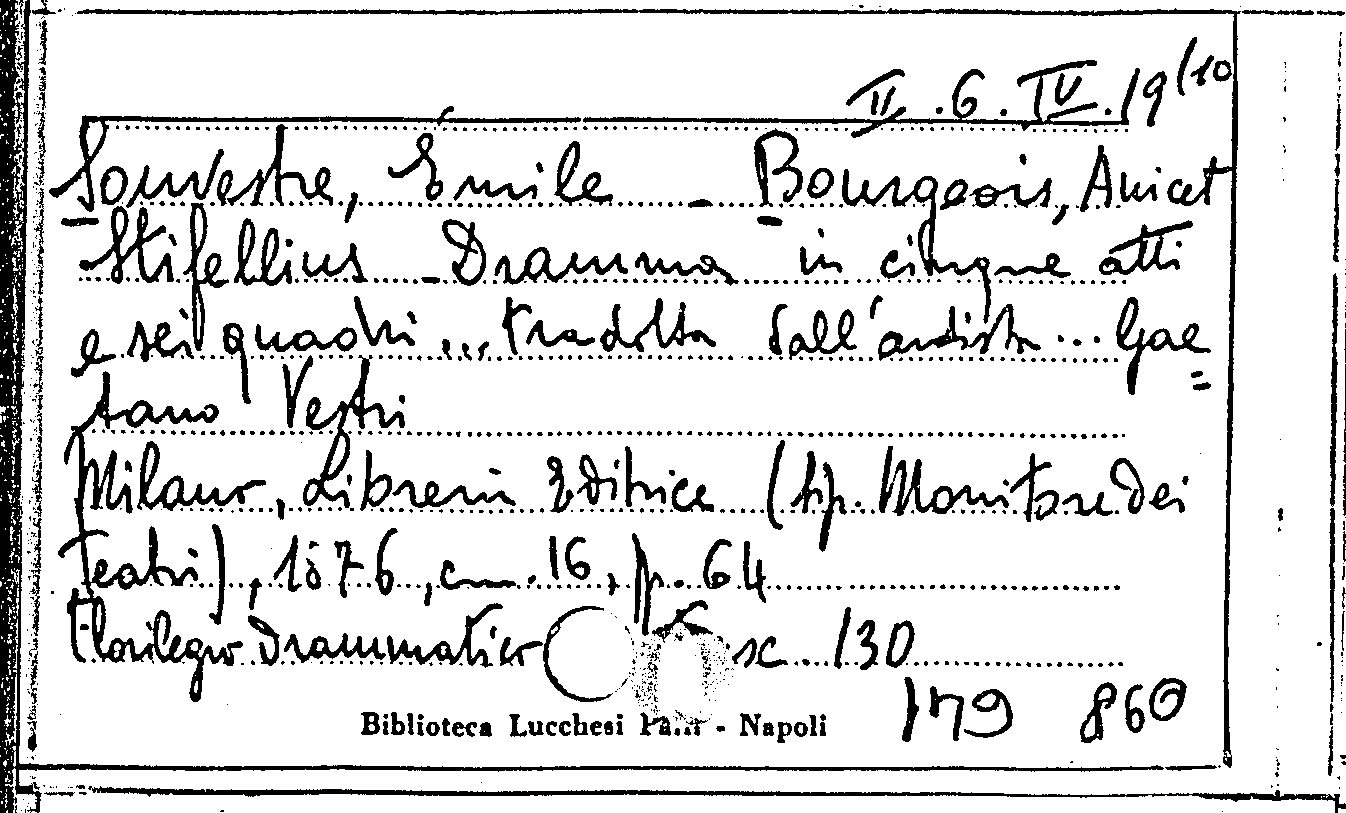 II.6.IV.19(10
Souvestre, Émile - Bourgeois, Anicet
Stifellius - Dramma in cinque atti
e sei quadri ... tradotta dall'artista ... Gae=
tano Vestri
Milano, Libreria Editrice (tip. Monitore dei
Teatri), 1876, cm. 16, p. 64
Florilegio drammatico sc. 130
Biblioteca Lucchesi Palli - Napoli
179 860